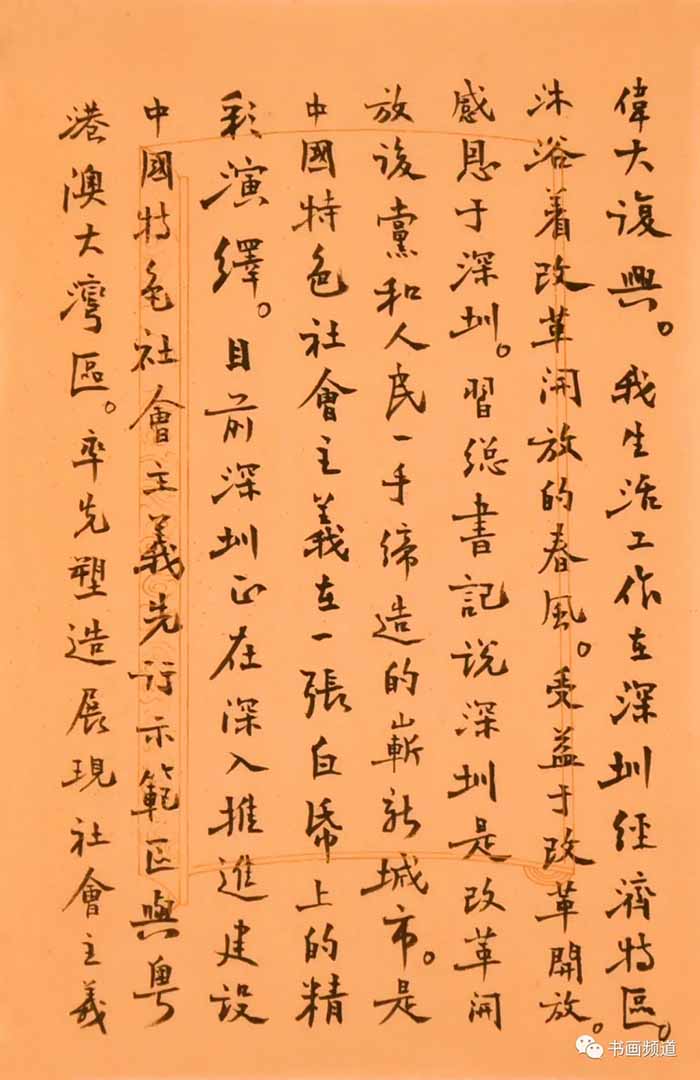 偉大復興。我生活工作在深圳經濟特區。
沐浴着改革開放的春風。受益于改革開放。
感恩于深圳。習總書記说深圳是改革開
放後黨和人民一手締造的嶄新城市。是
中國特色社會主義在一張白帋上的精
彩演繹。目前深圳正在深入推進建设
中國特色社會主義先行示範区與粤
港澳大灣區。率先塑造展現社會主義
书画频道